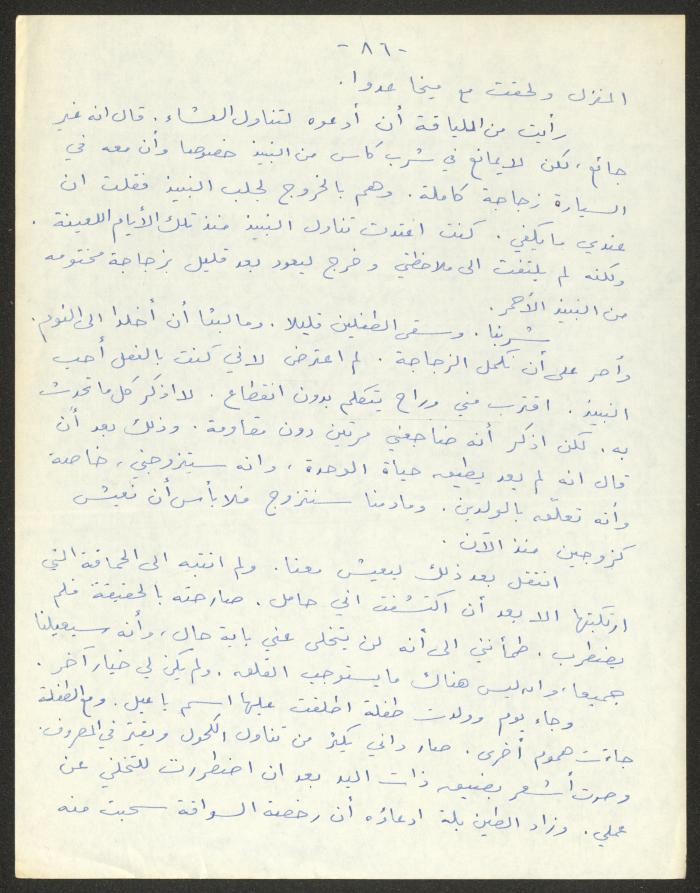 -٨٦-
المنزل ولحقت مع ميخا عدوا.
رأيت من اللياقة أن أدعوه لتناول العشاء. قال انه غير
جائع، لكن لا يمانع في شرب كاس من النبيذ خصوصا وأن معه في
السيارة زجاجة كاملة. وهم بالخروج لجلب النبيذ فقلت ان
عندي ما يكفي. كنت اعتدت تناول النبيذ منذ تلك الأيام اللعينة.
ولكنه لم يلتفت الى ملاحظتي وخرج ليعود بعد قليل بزجاجة مختومه
من النبيذ الأحمر.
شربنا. وسقى الطفلين قليلا. وما لبثا أن أخلدا الى النوم.
وأصر على أن نكمل الزجاجة. لم اعترض لاني كنت بالفعل أحب
النبيذ. اقترب مني وراح يتكلم بدون انقطاع. لا اذكر كل ما تحدث
به. لكن اذكر أنه ضاجعني مرتين دون مقاومة. وذلك بعد أن
قال انه لم يعد يطيق حياة الوحدة، وانه سيتزوجني، خاصة
وأنه تعلّق بالولدين. وما دمنا سنتزوج فلا بأس أن نعيش
كزوجين منذ الآن.
انتقل بعد ذلك ليعيش معنا. ولم انتبه الى الحماقة التي
ارتكبتها الا بعد أن اكتشفت اني حامل. صارحته بالحقيقة فلم
يضطرب. طمأنني الى أنه لن يتخلى عني باية حال، وأنه سيعيلنا
جميعا، وان ليس هناك ما يستوجب القلق. ولم يكن لي خيار آخر.
وجاء يوم وولدت طفلة اطلقت عليها اسم ياعيل. ومع الطفلة
جاءت هموم أخرى. صار داني يكثر من تناول الكحول ويقتر في المصروف.
وصرت أشعر بضيق ذات اليد بعد ان اضطررت للتخلي عن
عملي. وزاد الطين بلة ادعاؤه أن رخصة السواقة سحبت منه